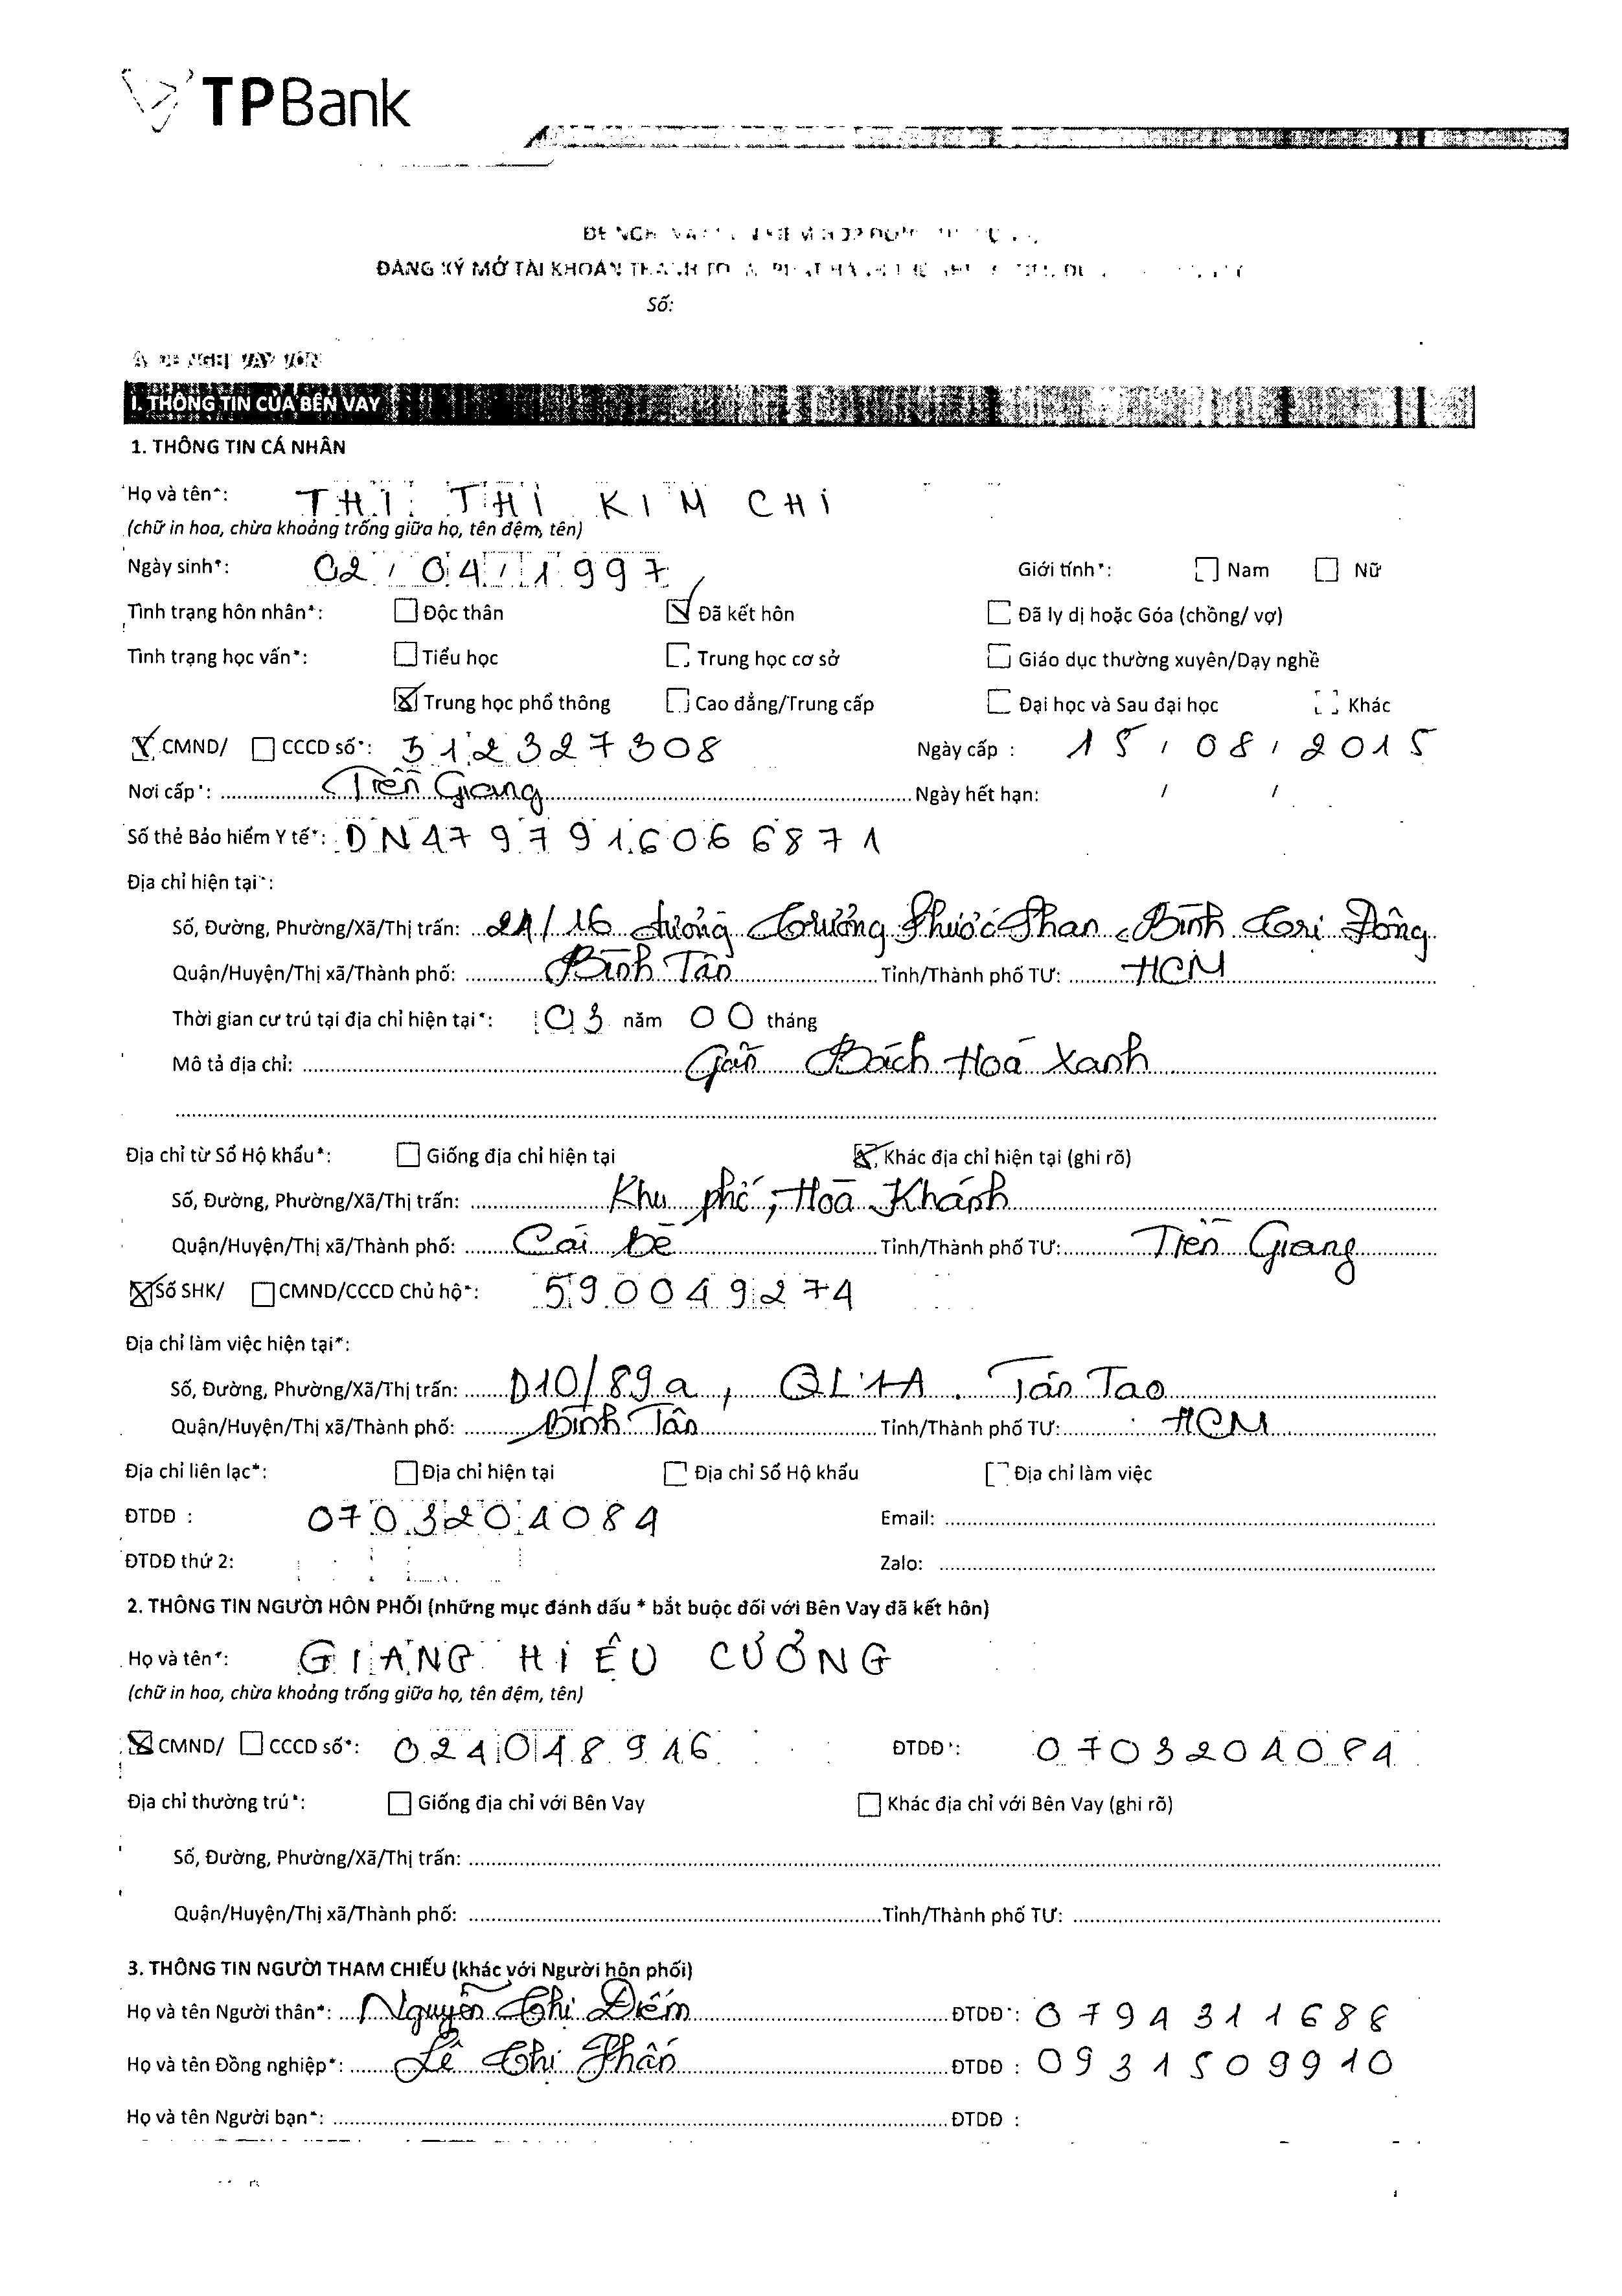 TPBank
ĐĂNG KÝ MỞ TÀI KHOẢN THANH
Số:
I. THÔNG TIN CỦA BÊN VAY
1. THÔNG TIN CÁ NHÂN
Họ và tên*: THI THI KIM CHI
(chữ in hoa, chừa khoảng trống giữa họ, tên đệm, tên)
Ngày sinh*: 02 / 04 / 1997 Giới tính*: Nam Nữ
Tình trạng hôn nhân*: Độc thân Đã kết hôn Đã ly dị hoặc Góa (chồng/ vợ)
Tình trạng học vấn*: Tiểu học Trung học cơ sở Giáo dục thường xuyên/Dạy nghề
Trung học phổ thông Cao đẳng/Trung cấp Đại học và Sau đại học Khác
CMND/ CCCD số*: 312327308 Ngày cấp : 15 / 08 / 2015
Nơi cấp*: Tiền Giang Ngày hết hạn: / /
Số thẻ Bảo hiểm Y tế*: DN4797916066871
Địa chỉ hiện tại*:
Số, Đường, Phường/Xã/Thị trấn: 24/16 đường Trương Phước Phan, Bình Trị Đông
Quận/Huyện/Thị xã/Thành phố: Bình Tân Tỉnh/Thành phố TƯ: HCM
Thời gian cư trú tại địa chỉ hiện tại*: 03 năm 00 tháng
Mô tả địa chỉ: Gần Bách Hoá Xanh
Địa chỉ từ Sổ Hộ khẩu*: Giống địa chỉ hiện tại Khác địa chỉ hiện tại (ghi rõ)
Số, Đường, Phường/Xã/Thị trấn: Khu phố, Hoà Khánh
Quận/Huyện/Thị xã/Thành phố: Cái bè Tỉnh/Thành phố TƯ: Tiền Giang
Số SHK/ CMND/CCCD Chủ hộ*: 590049274
Địa chỉ làm việc hiện tại*:
Số, Đường, Phường/Xã/Thị trấn: D10/89a, QL1A. Tân Tạo
Quận/Huyện/Thị xã/Thành phố: Bình Tân Tỉnh/Thành phố TƯ: HCM
Địa chỉ liên lạc*: Địa chỉ hiện tại Địa chỉ Sổ Hộ khẩu Địa chỉ làm việc
ĐTDĐ : 0703204084 Email:
ĐTDĐ thứ 2: Zalo:
2. THÔNG TIN NGƯỜI HÔN PHỐI (những mục đánh dấu * bắt buộc đối với Bên Vay đã kết hôn)
Họ và tên*: GIANG HIỆU CƯỜNG
(chữ in hoa, chừa khoảng trống giữa họ, tên đệm, tên)
CMND/ CCCD số*: 024048946 ĐTDĐ*: 0703204084
Địa chỉ thường trú*: Giống địa chỉ với Bên Vay Khác địa chỉ với Bên Vay (ghi rõ)
Số, Đường, Phường/Xã/Thị trấn:
Quận/Huyện/Thị xã/Thành phố: Tỉnh/Thành phố TƯ:
3. THÔNG TIN NGƯỜI THAM CHIẾU (khác với Người hôn phối)
Họ và tên Người thân*: Nguyễn Thị Diễm ĐTDĐ*: 0794311686
Họ và tên Đồng nghiệp*: Lê Thị Phấn ĐTDĐ : 0931509910
Họ và tên Người bạn*: ĐTDĐ :